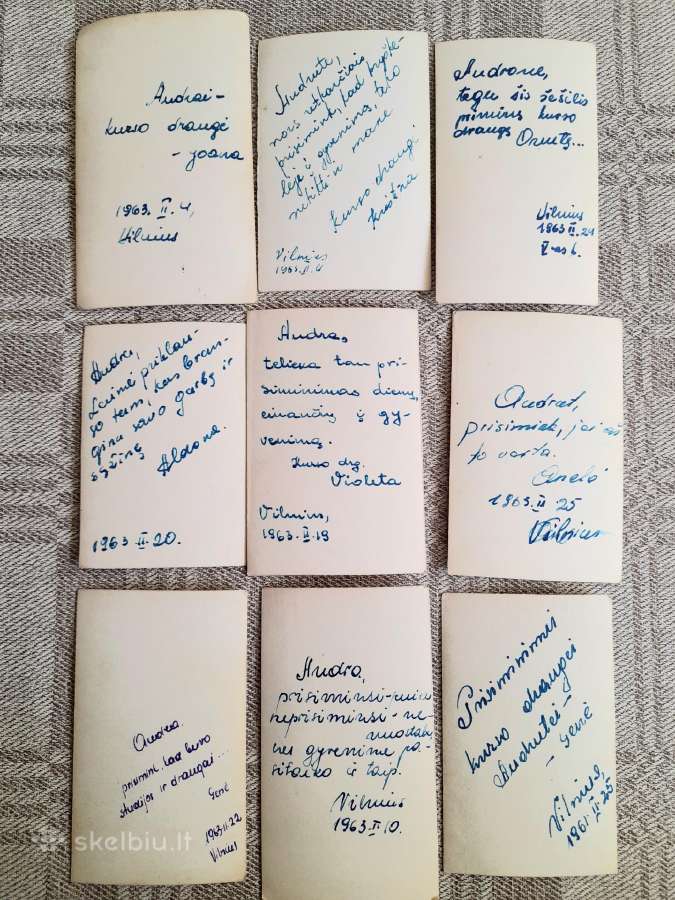 Audrai-
kurso draugė
- Joana
1963. II. 4,
Vilnius
Audrute,
nors retkarčiais
prisimink, kad
gyvenimą,
mane
kurso draugė
Vilnius
1963. II. 4
Audrone,
tegu šis šešėlis
primins kurso
draugę Onutę...
Vilnius
1963 II. 21
Audra,
Laimė priklau-
so tam, kas bran-
gina savo garbę ir
sąžinę
Aldona.
1963. II. 20.
Audra,
telieka tau pri-
siminimas dienų,
einančių į gy-
venimą.
Kurso drg.
Violeta
Vilnius,
1963. II. 19
Audrut,
prisimink, jei aš
to verta.
Anelė
1963. II. 25
Vilnius
Audra.
prisimink, kad buvo
studijos ir draugai...
Genė
1963.II.22
Vilnius
Audra,
prisiminsi-
neprisiminsi-ne-
nes gyvenime pa-
sitaiko ir taip.
Vilnius
1963. II. 10.
Prisiminimui
kurso draugei
Audrutei-
- Genė
Vilnius,
II. 25.
skelbiu.lt